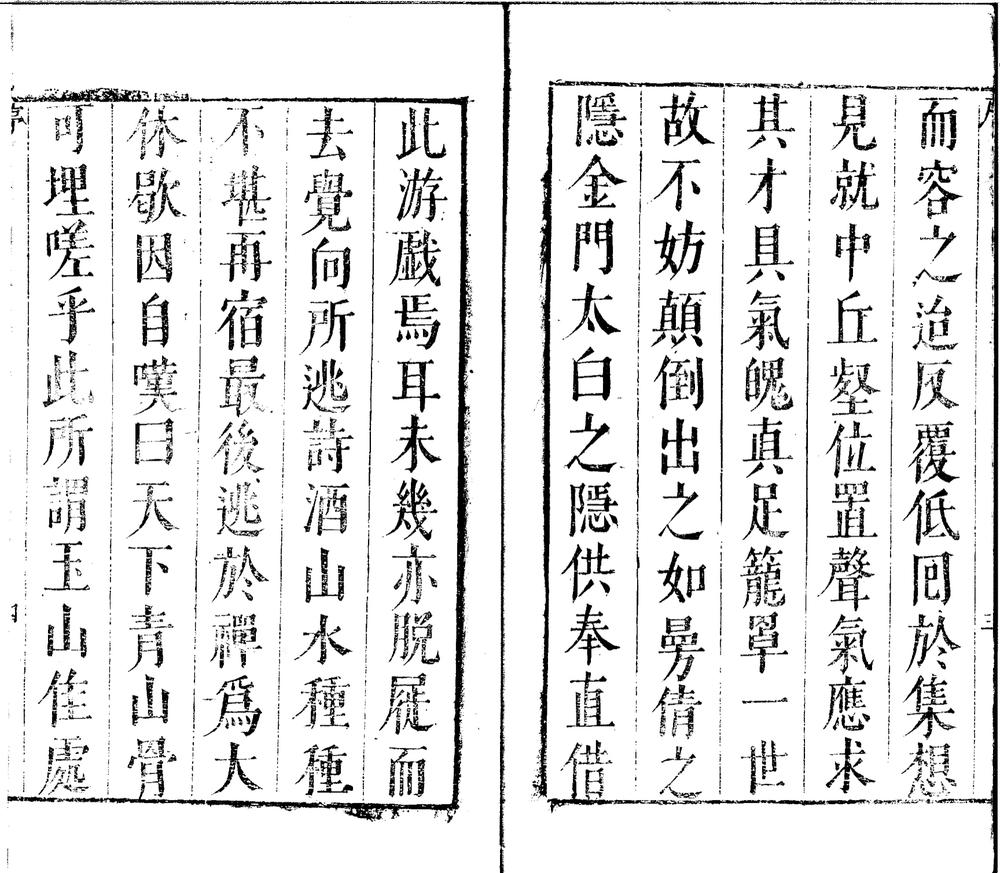 而容之迨反覆低囘於集想
見就中丘壑位置聲氣應求
其才具氣魄真足籠罩一世
故不妨顛倒出之如曼倩之
隱金門太白之隱供奉直借
此游戲焉耳未幾亦脫屣而
去覺向所逃詩酒山水種種
不堪再宿最後逃於禪爲大
休歇因自嘆曰天下青山骨
可埋嗟乎此所謂玉山佳處